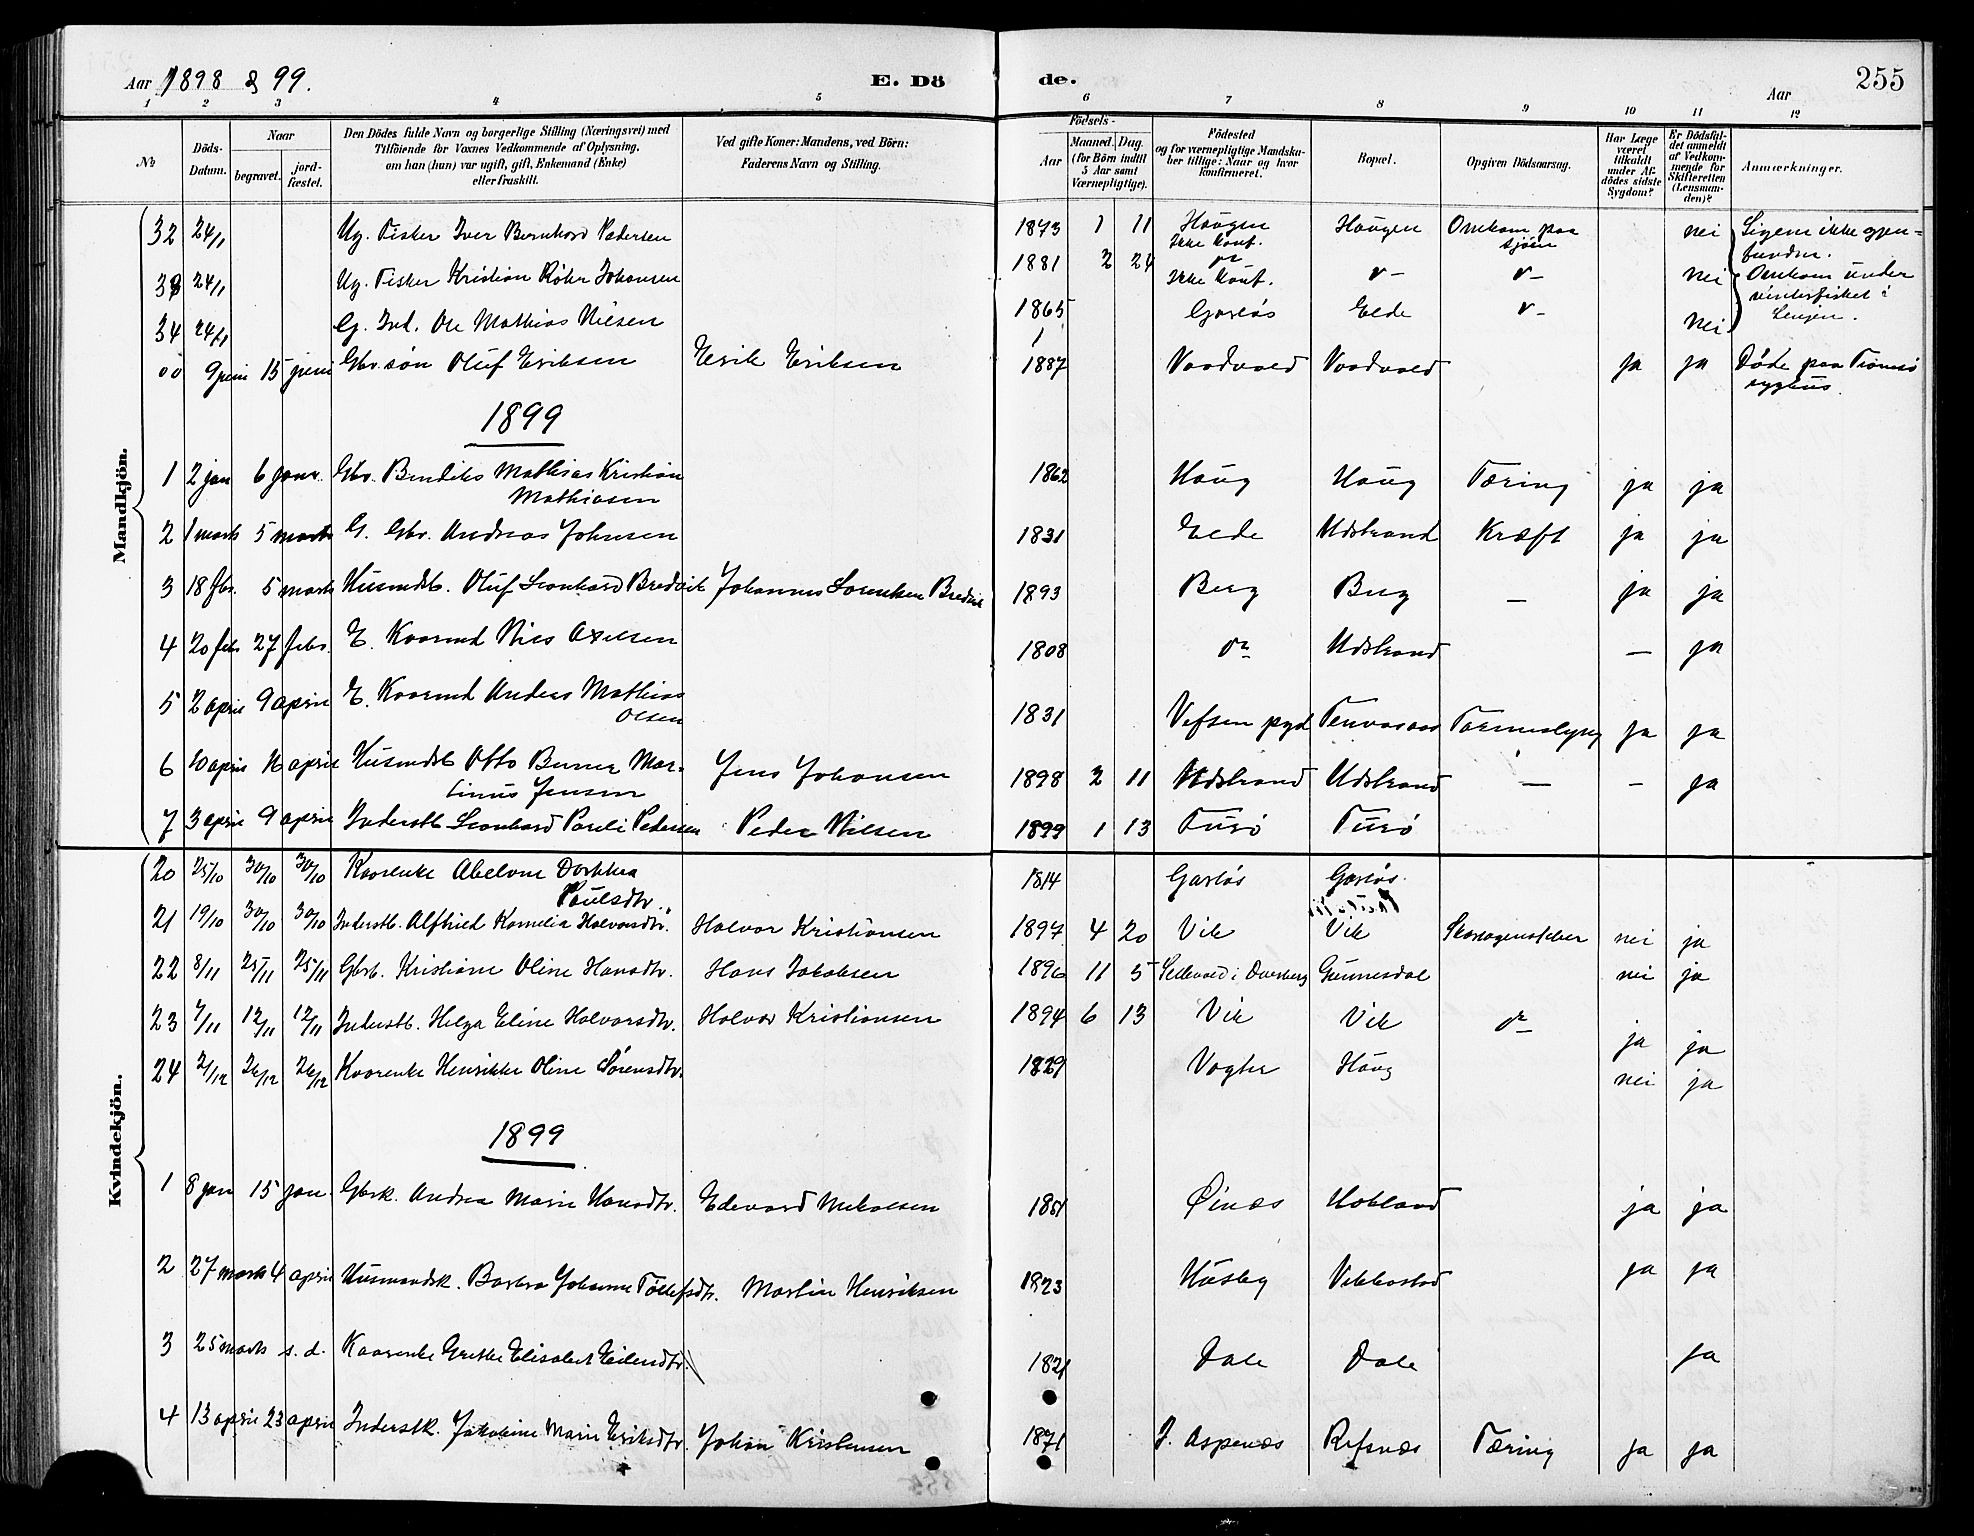 Aar 1898 & 99. E. Dö de. Aar 255
1 2 3 4 5 6 7 8 9 10 11 12
No
Döds-Datum.
Naar
begravet. jord-fæstet.
Den Dödes fulde Navn og borgerlige Stilling (Næringsvei) med
Tilföiende for Voxnes Vedkommende af Oplysning,
om han (hun) var ugift, gift, Enkemand (Enke)
eller fraskilt.
Ved gifte Koner: Mandens, ved Börn:
Faderens Navn og Stilling.
Födsels-
Aar Maaned. Dag.
(for Börn indtil
5 Aar samt
Værnepligtige).
Födested
og for værnepligtige Mandska-
ber tillige: Naar og hvor
konfirmeret.
Bopæl.
Opgiven Dödsaarsag.
Har Læge
været
tilkaldt
under Af-
dödes sidste
Sygdom?
Er Dödsfal-
det anmeldt
af Vedkom-
mende for
Skifteretten
(Lensman-
den)?
Anmærkninger.
Mandkjön.
32 24/1 Ug. Fisker Iver Bernhard Pedersen 1873 1 11 Haugen Ikke konf. Haugen Omkom paa sjøen nei Ligene ikke gjen-
fundne.
33 24/1 Ug. Fisker Kristian Røhr Johansen 1881 2 24 do Ikke konf. do do nei Omkom under
vinterfisket i
34 24/1 G. Ind. Ole Mathias Nilsen 1865 Garløs Elde do nei Senjen.
00 9 juni 15 juni Gbr. søn Oluf Eriksen Erik Eriksen 1887 Vaadvold Vaadvold ja ja Døde paa Tromsø
sygehus.
1899
1 2 jan 6 janr. Gbr. Bendiks Mathias Kristian
Mathiasen 1862 Haug Haug Tæring ja ja
2 1 marts 5 marts G. Gbr. Andreas Johnsen 1831 Elde Udstrand Kræft ja ja
3 18 fbr. 5 marts Husmdsb. Oluf Leonhard Bredvik Johannes Sorentsen Bredvik 1893 Berg Berg — ja ja
4 20 febr 27 febr. E. Kaarmd Nils Axelsen 1808 do Udstrand — ja
5 2 april 9 april E. Kaarmd Anders Mathias
Olsen 1831 Vefsen pgd Tarmslyng ja ja
6 10 april 16 april Husmdsb Otto Berner Mar-
tinus Jensen Jens Johansen 1898 2 11 Udstrand Udstrand — – ja
7 3 april 9 april Inderstb Leonhard Pauli Pedersen Peder Nilsen 1899 1 13 Tusø Tusø
Kvindekjön.
20 25/10 30/10 30/10 Kaarenke Abelone Dorthea
Paulsdtr. 1814 Garløs Garløs.
21 19/10 30/10 30/10 Inderstb. Alfhild Kornelia Halvorsdtr. Halvor Kristiansen 1897 4 20 Vik Vik nei ja
22 8/11 25/11 25/11 Gbrb. Kristiane Oline Hansdtr. Hans Jakobsen 1896 11 5 i Dverberg Gunnesdal nei ja
23 7/11 12/11 12/11 Inderstb. Helga Eline Halvorsdtr. Halvor Kristiansen 1894 6 13 Vik Vik do ja ja
24 2/12 26/12 26/12 Kaarenke Henrikke Oline Sørensdtr. 1829 Vogter Haug nei ja
1899
1 8 jan 15 jan. Gbrk. Andrea Marie Hansdtr. Edevard Nikolsen 1851 Øinæs Hokland ja ja
2 27 marts 4 april Husmandsk. Barbra Johanne Tollefsdtr. Martin Henriksen 1823 Husby Vikkestad ja ja
3 25 marts s. d. Kaarenke Grethe Elisabet Eilensdtr. 1821 Dale Dale ja
4 13 april 23 april Inderstk. Jakobine Marie Eriksdtr. Johan Kristensen 1871 I. Aspenæs Refsnæs Tæring ja ja